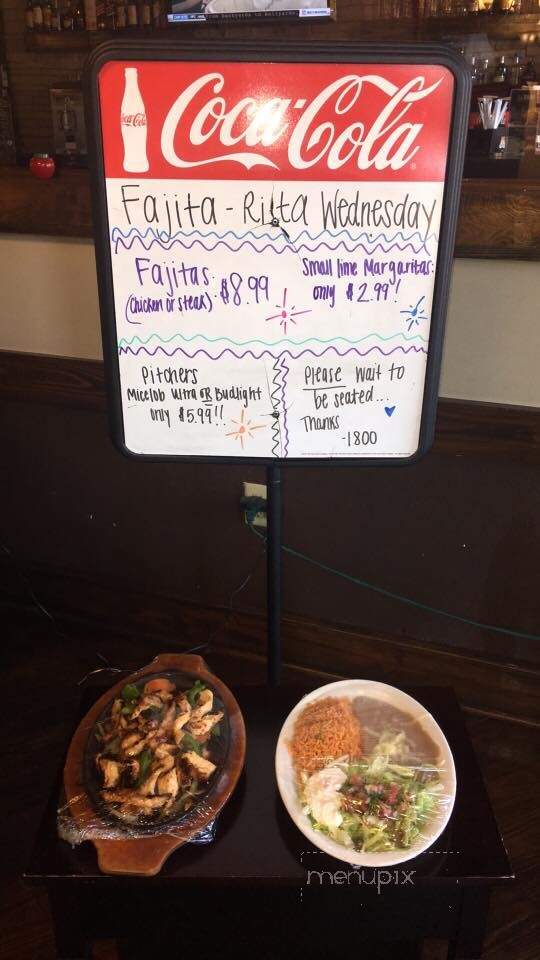 Coca-Cola
Coca-Cola
Fajita - Rita Wednesday
Fajitas:
(Chicken or steak)
$8.99
Small lime Margaritas:
only $2.99!
Pitchers
Micelob Ultra OR Budlight
only $5.99!!
Please wait to
be seated...
Thanks
-1800
menupix